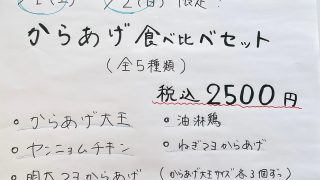 (土) 2(日) 限定!
からあげ食べ比べセット
(全5種類)
税込 2500円
○ からあげ大王
○ 油淋鶏
○ ヤンニョムチキン
○ ねぎマヨからあげ
明太マヨからあげ
(からあげ大王サイズ各3個ずつ)